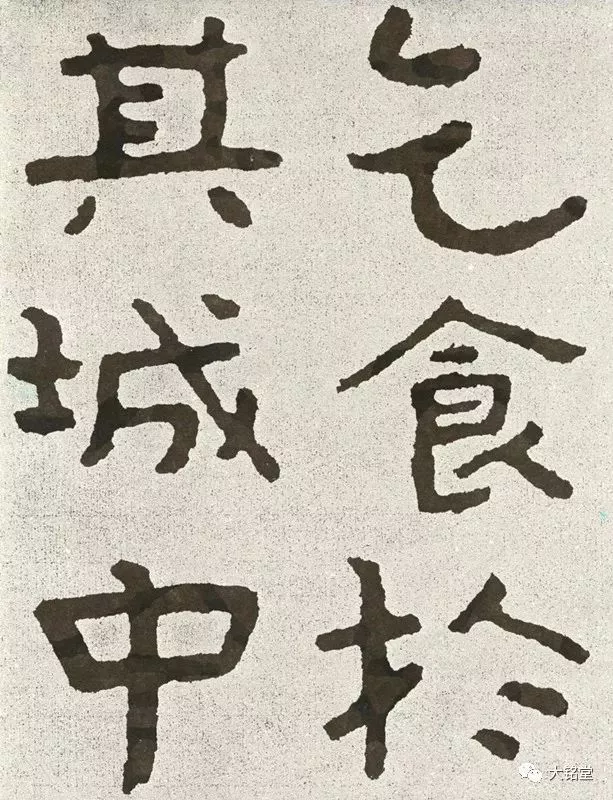 乞食於
其城中
大铭堂